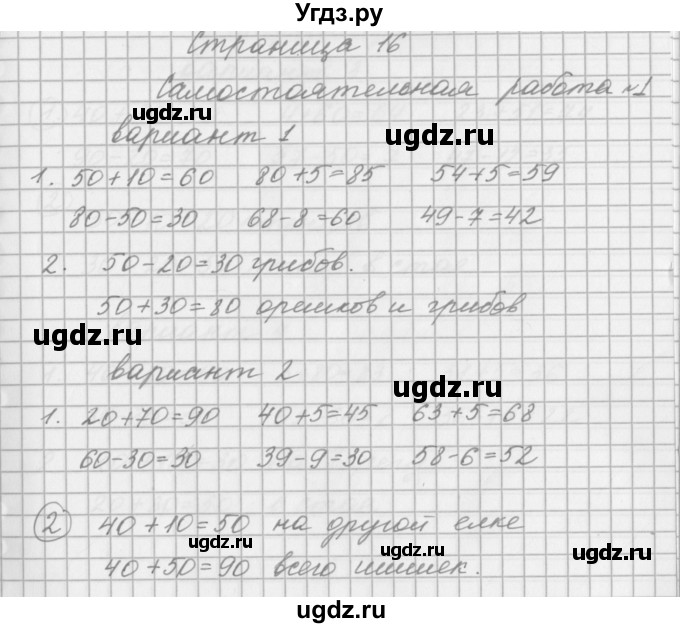 Угдз.ру
Страница 16
Самостоятельная работа №1
ugdz.ru ugdz.ru
вариант 1
1. 50+10=60 80+5=85 54+5=59
80-50=30 68-8=60 49-7=42
ugdz.ru ugdz.ru
2. 50-20=30 грибов.
50+30=80 орешков и грибов
ugdz.ru
вариант 2
ugdz.ru
1. 20+70=90 40+5=45 63+5=68
60-30=30 39-9=30 58-6=52
2 40+10=50 на другой елке
ugdz.ru ugdz.ru ugdz.ru
40+50=90 всего шишек.
ugdz.ru